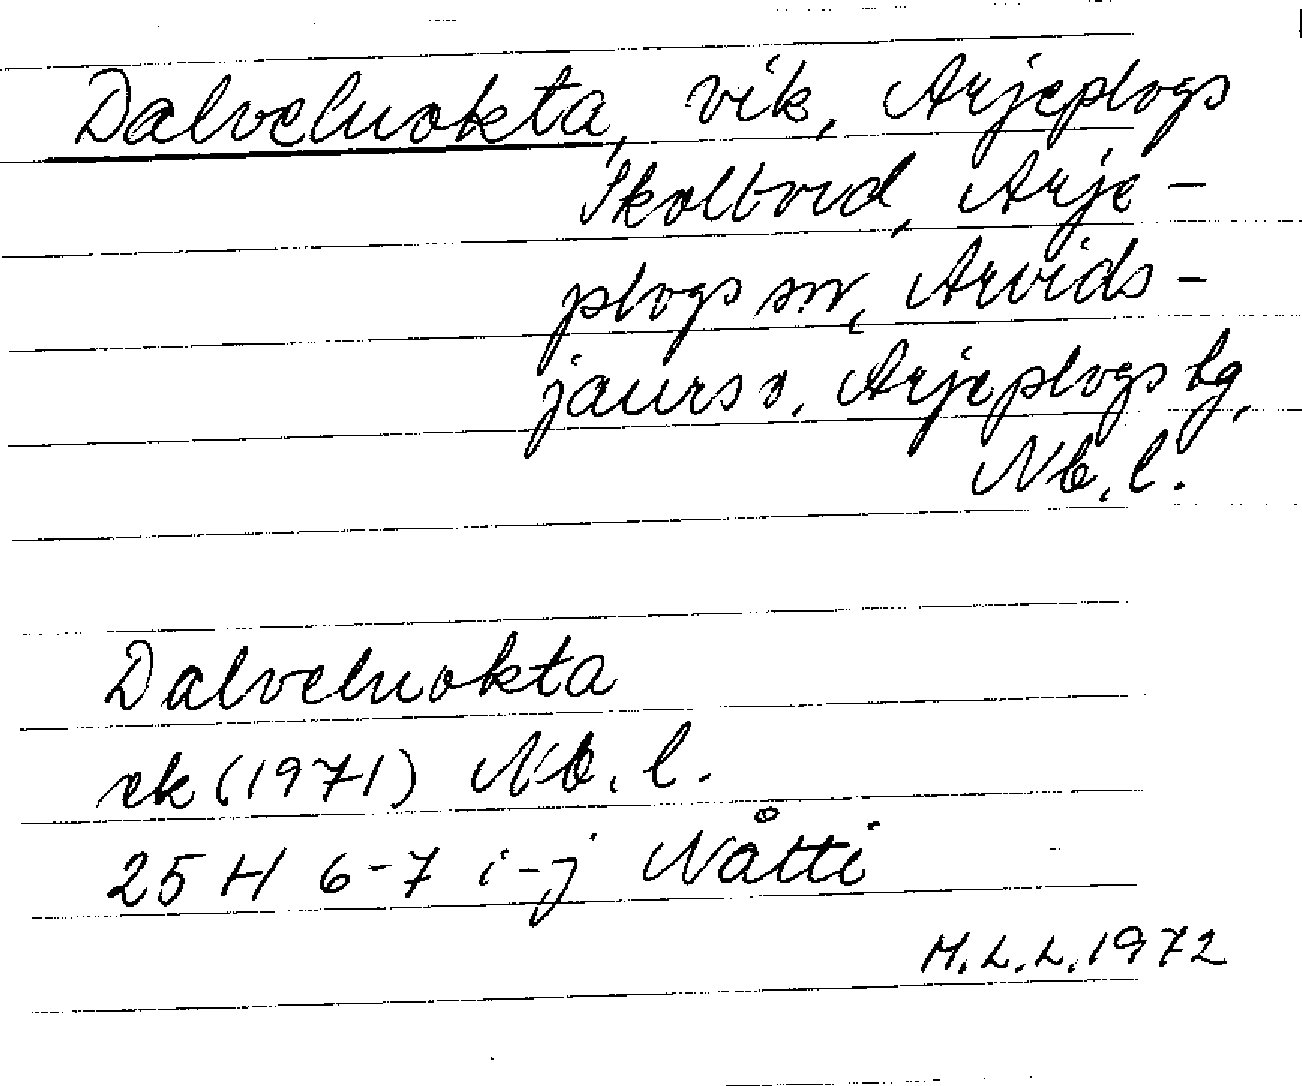 Dalveluokta, vik, Arjeplogs
Skolbord, Arje-
plogs sn, Arvids-
jaurs o. Arjeplogs tg,
Nb. l.
Dalveluokta
ek (1971) Nb. l.
25 H 6-7 i-j Nåtti
M.L.L. 1972